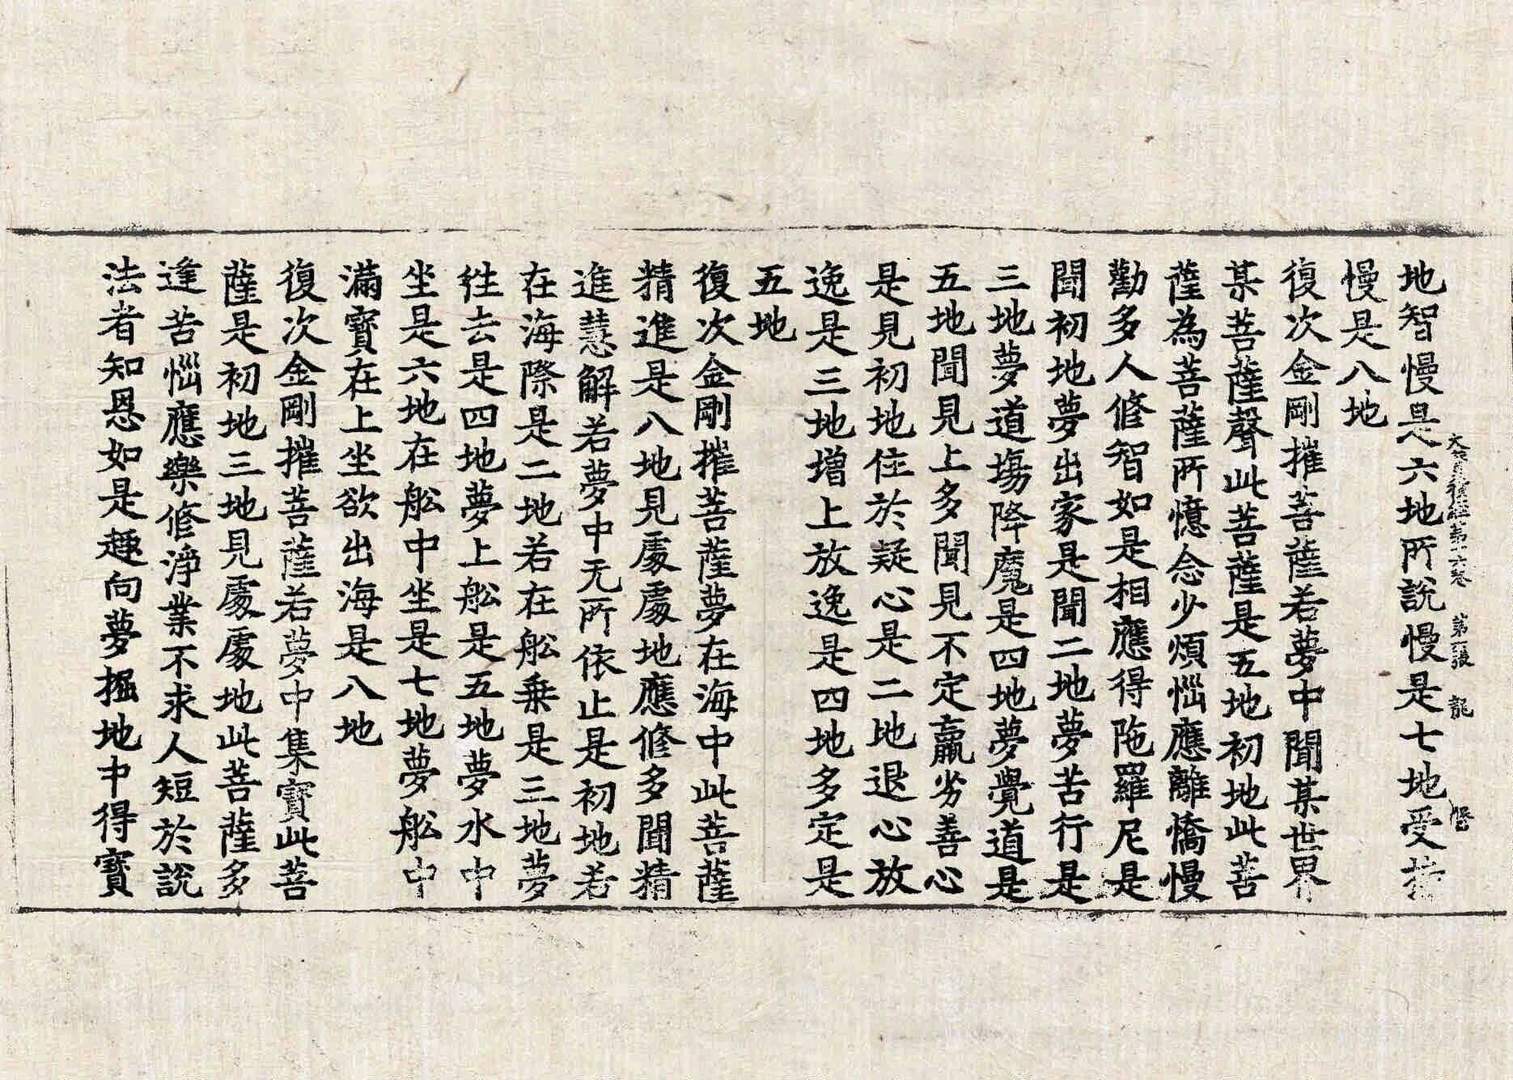 地智慢是六地所說慢是七地受持
大寶積經第十六卷 第張 龍
慢是八地
復次金剛摧菩薩若夢中聞某世界
某菩薩聲此菩薩是五地初地此菩
薩為菩薩所憶念少煩惱應離憍慢
勸多人修智如是相應得陁羅尼是
聞初地夢出家是聞二地夢苦行是
三地夢道塲降魔是四地夢覺道是
五地聞見上多聞見不定羸劣善心
是見初地住於疑心是二地退心放
逸是三地增上放逸是四地多定是
五地
復次金剛摧菩薩夢在海中此菩薩
精進是八地見處處地應修多聞精
進慧解若夢中无所依止是初地若
在海際是二地若在舩乗是三地夢
徃去是四地夢上舩是五地夢水中
坐是六地在舩中坐是七地夢舩中
滿寶在上坐欲出海是八地
復次金剛摧菩薩若夢中集寶此菩
薩是初地三地見處處地此菩薩多
逢苦惱應樂修淨業不求人短於說
法者知恩如是趣向夢掘地中得寶